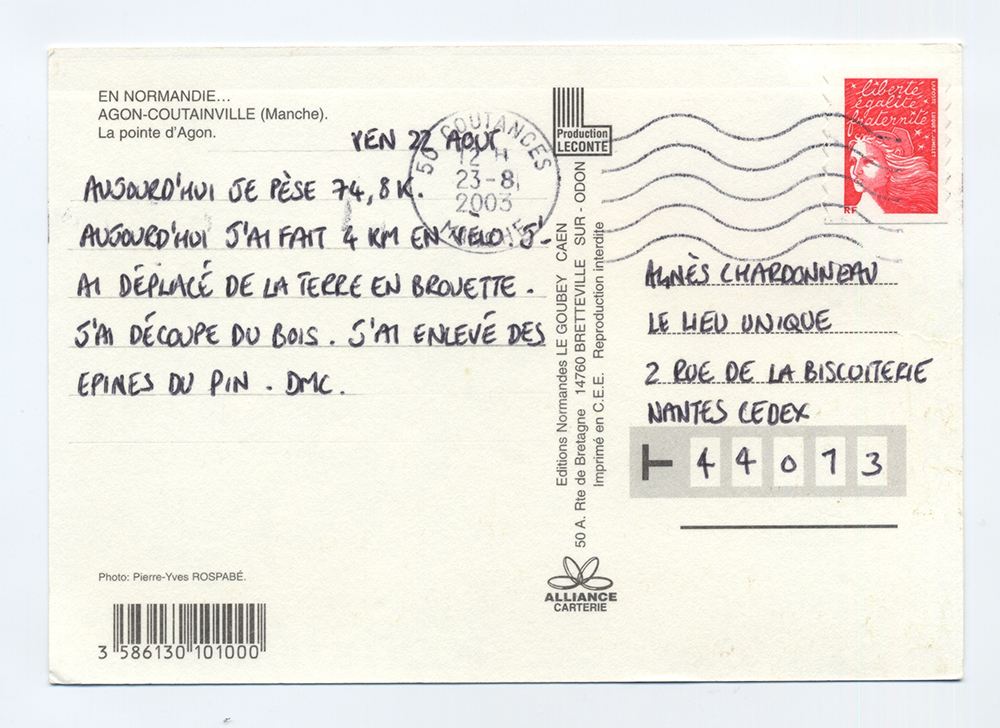 EN NORMANDIE...
AGON-COUTAINVILLE (Manche).
La pointe d'Agon.
VEN 22 AOUT
AUJOURD'HUI JE PÈSE 74,8K.
AUJOURD'HUI J'AI FAIT 4 KM EN VÉLO J'-
AI DÉPLACÉ DE LA TERRE EN BROUETTE.
J'AI DÉCOUPE DU BOIS. J'AI ENLEVÉ DES
EPINES DU PIN. DMC.
Photo: Pierre-Yves ROSPABÉ.
3 586130 101000
50 COUTANCES
12 H
23-8
2003
Production
LECONTE
Editions Normandes LE GOUBEY CAEN
50 A. Rte de Bretagne 14760 BRETTEVILLE SUR - ODON
Imprimé en C.E.E. Reproduction interdite
ALLIANCE
CARTERIE
liberté
égalité
fraternité
LA POSTE
RF
AGNÈS CHARDONNEAU
LE LIEU UNIQUE
2 RUE DE LA BISCUITERIE
NANTES CEDEX
T 44013